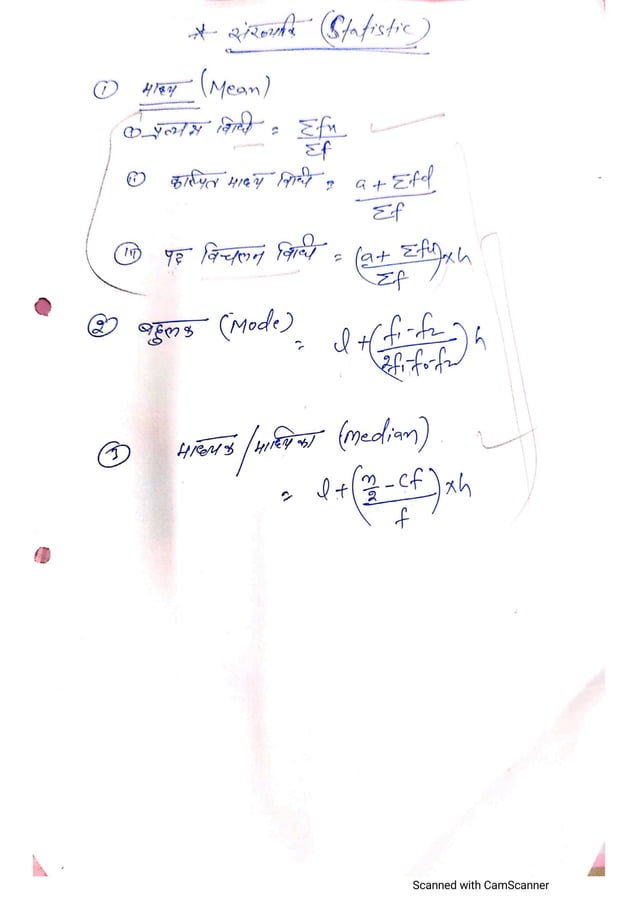 * सांख्यिकी (Statistic)
① माध्य (Mean)
① प्रत्यक्ष विधी = Σfx / Σf
② कल्पित माध्य विधी = a + Σfd / Σf
(iii) पद विचलन विधी = (a + Σfu / Σf) × h
② बहुलक (Mode) = l + (f₁-f₂ / 2f₁-f₀-f₂) h
③ माध्यक / माध्यिका (Median)
= l + (n/2 - cf / f) × h
Scanned with CamScanner